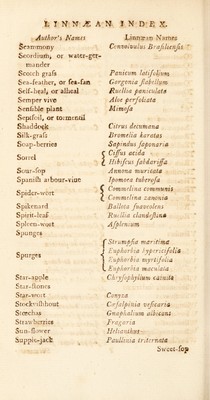 LINNÆAN INDEX.
Author's Names Linnæan Names
Scammony Convolvulus Brasiliensis
Scordium, or water-ger-
mander
Scotch grass Panicum latifolium
Sea-feather, or sea-fan Gorgonia flabellum
Self-heal, or alheal Ruellia paniculata
Semper vive Aloe perfoliata
Sensible plant Mimosa
Septfoil, or tormentil
Shaddock Citrus decumana
Silk-grass Bromelia karatas
Soap-berries Sapindus saponaria
Sorrel { Cissus acida
Hibiscus sabdariffa
Sour-sop Annona muricata
Spanish arbour-vine Ipomœa tuberosa
Spider-wort { Commelina communis
Commelina zanonia
Spikenard Ballota suaveolens
Spirit-leaf Ruellia clandestina
Spleen-wort Asplenium
Spunges
Spurges { Strumpfia maritima
Euphorbia hypericifolia
Euphorbia myrtifolia
Euphorbia maculata
Star-apple Chrysophyllum cainito
Star-stones
Star-wort Conyza
Stockvishhout Cæsalpinia vesicaria
Stœchas Gnaphalium albicans
Strawberries Fragaria
Sun-flower Helianthus
Supple-jack Paullinia triternata
Sweet-sop